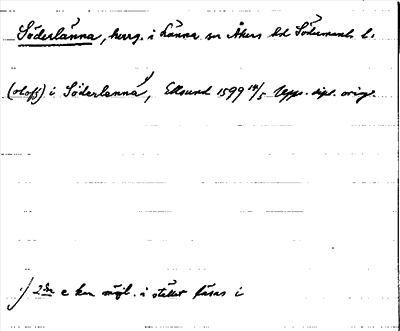 Söderlänna, herrg. i Länna sn Åkers hd Södermanl. l.
(oloff) i Söderlenna¹⁾, Eksund 1599 14/5 Upps. dipl. orig.
¹⁾ 2dra e kan möjl. i stället läsas i